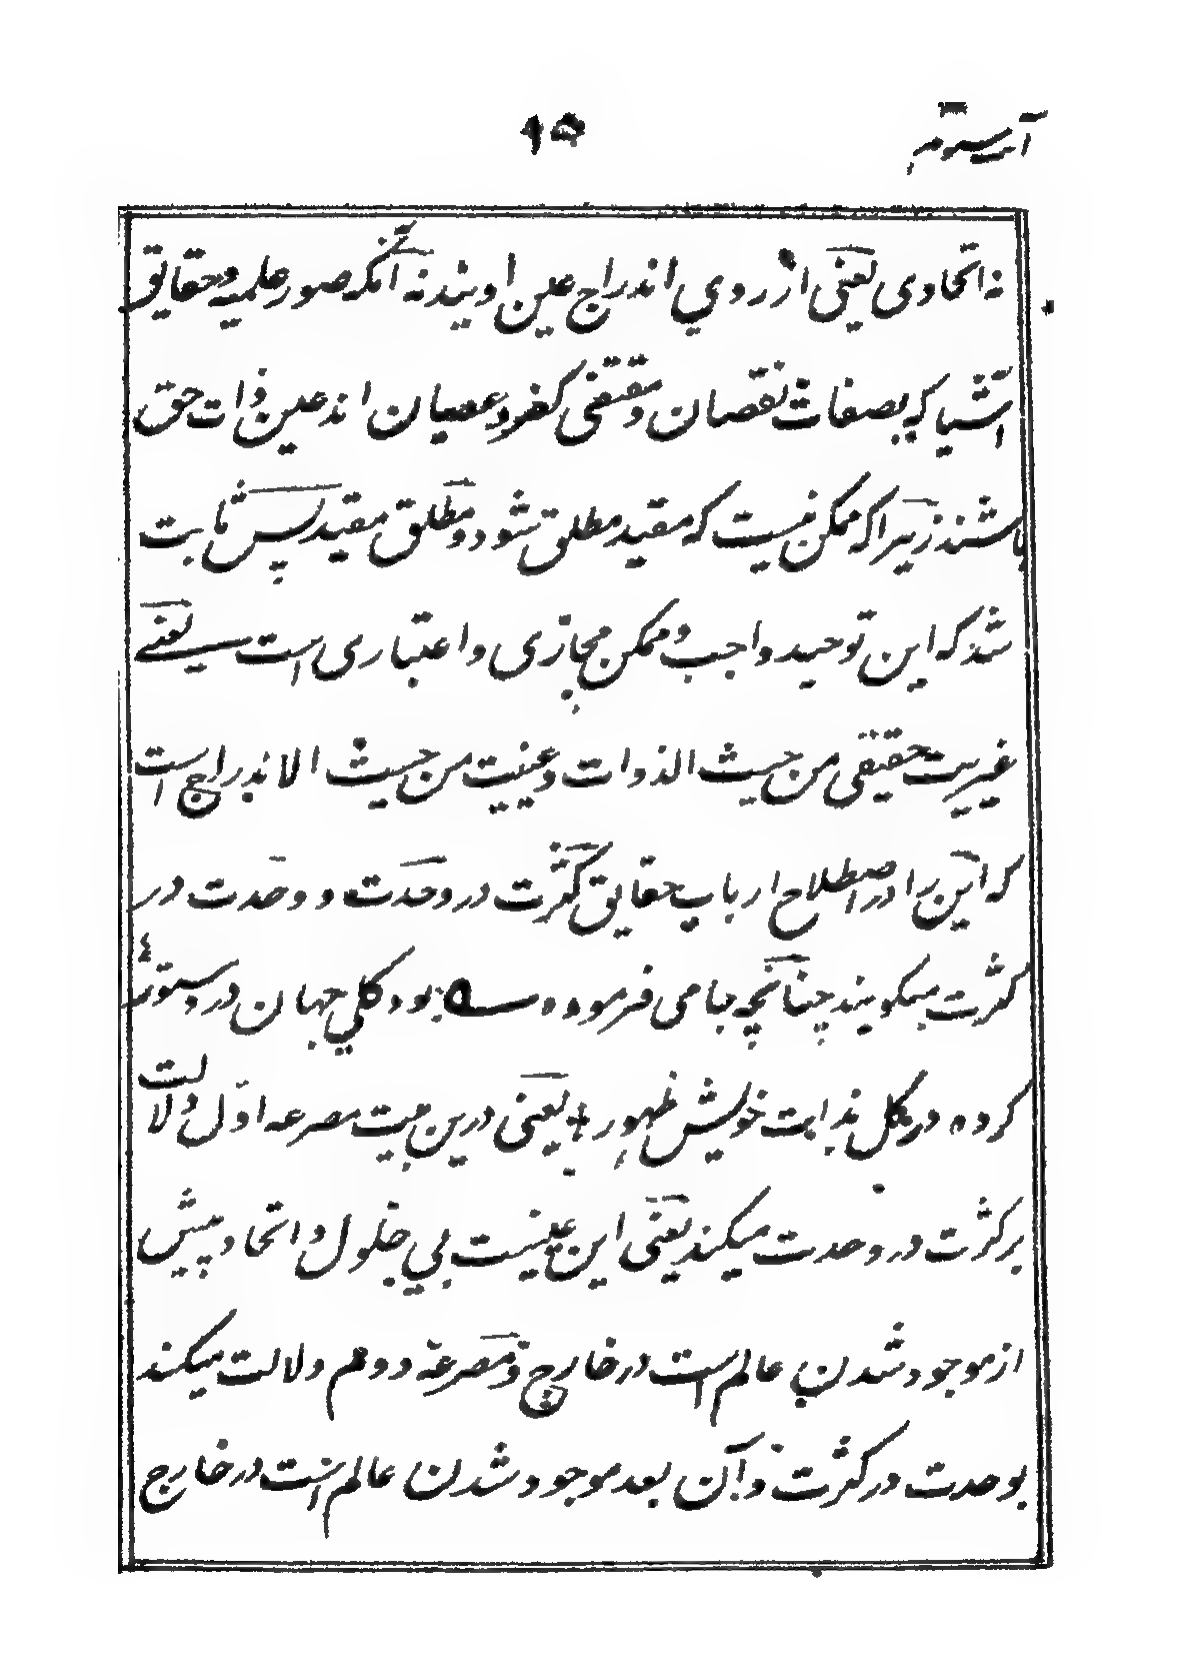 ۱۵
نه اتحادی یعنی از روي اندراج عین اویند نه آنکه صور علمیه و حقایق
اشیا که بصفات نقصان و مقتضی کفر و عصیان اند عین ذات حق
باشند زیرا که ممکن نیست که مقید مطلق شود و مطلق مقید پس ثابت
شد که این توحید واجب و ممکن مجازی و اعتباری است یعنے
غیریت حقیقی من حیث الذوات و عینیت من حیث الاندراج است
که این را در اصطلاح ارباب حقایق کثرت در وحدت و وحدت در
کثرت میگویند چنانچه جامی فرموده ؎ بود کلي جهان در و مستور ع
کرده در کل بذات خویش ظهور + یعنی درین بیت مصرعه اوّل دلالت
بر کثرت در وحدت میکند یعنی این عینیست بي حلول و اتحاد پیش
از موجود شدن عالم است در خارج و مصرعه دوم دلالت میکند
بوحدت در کثرت و آن بعد موجود شدن عالم است در خارج